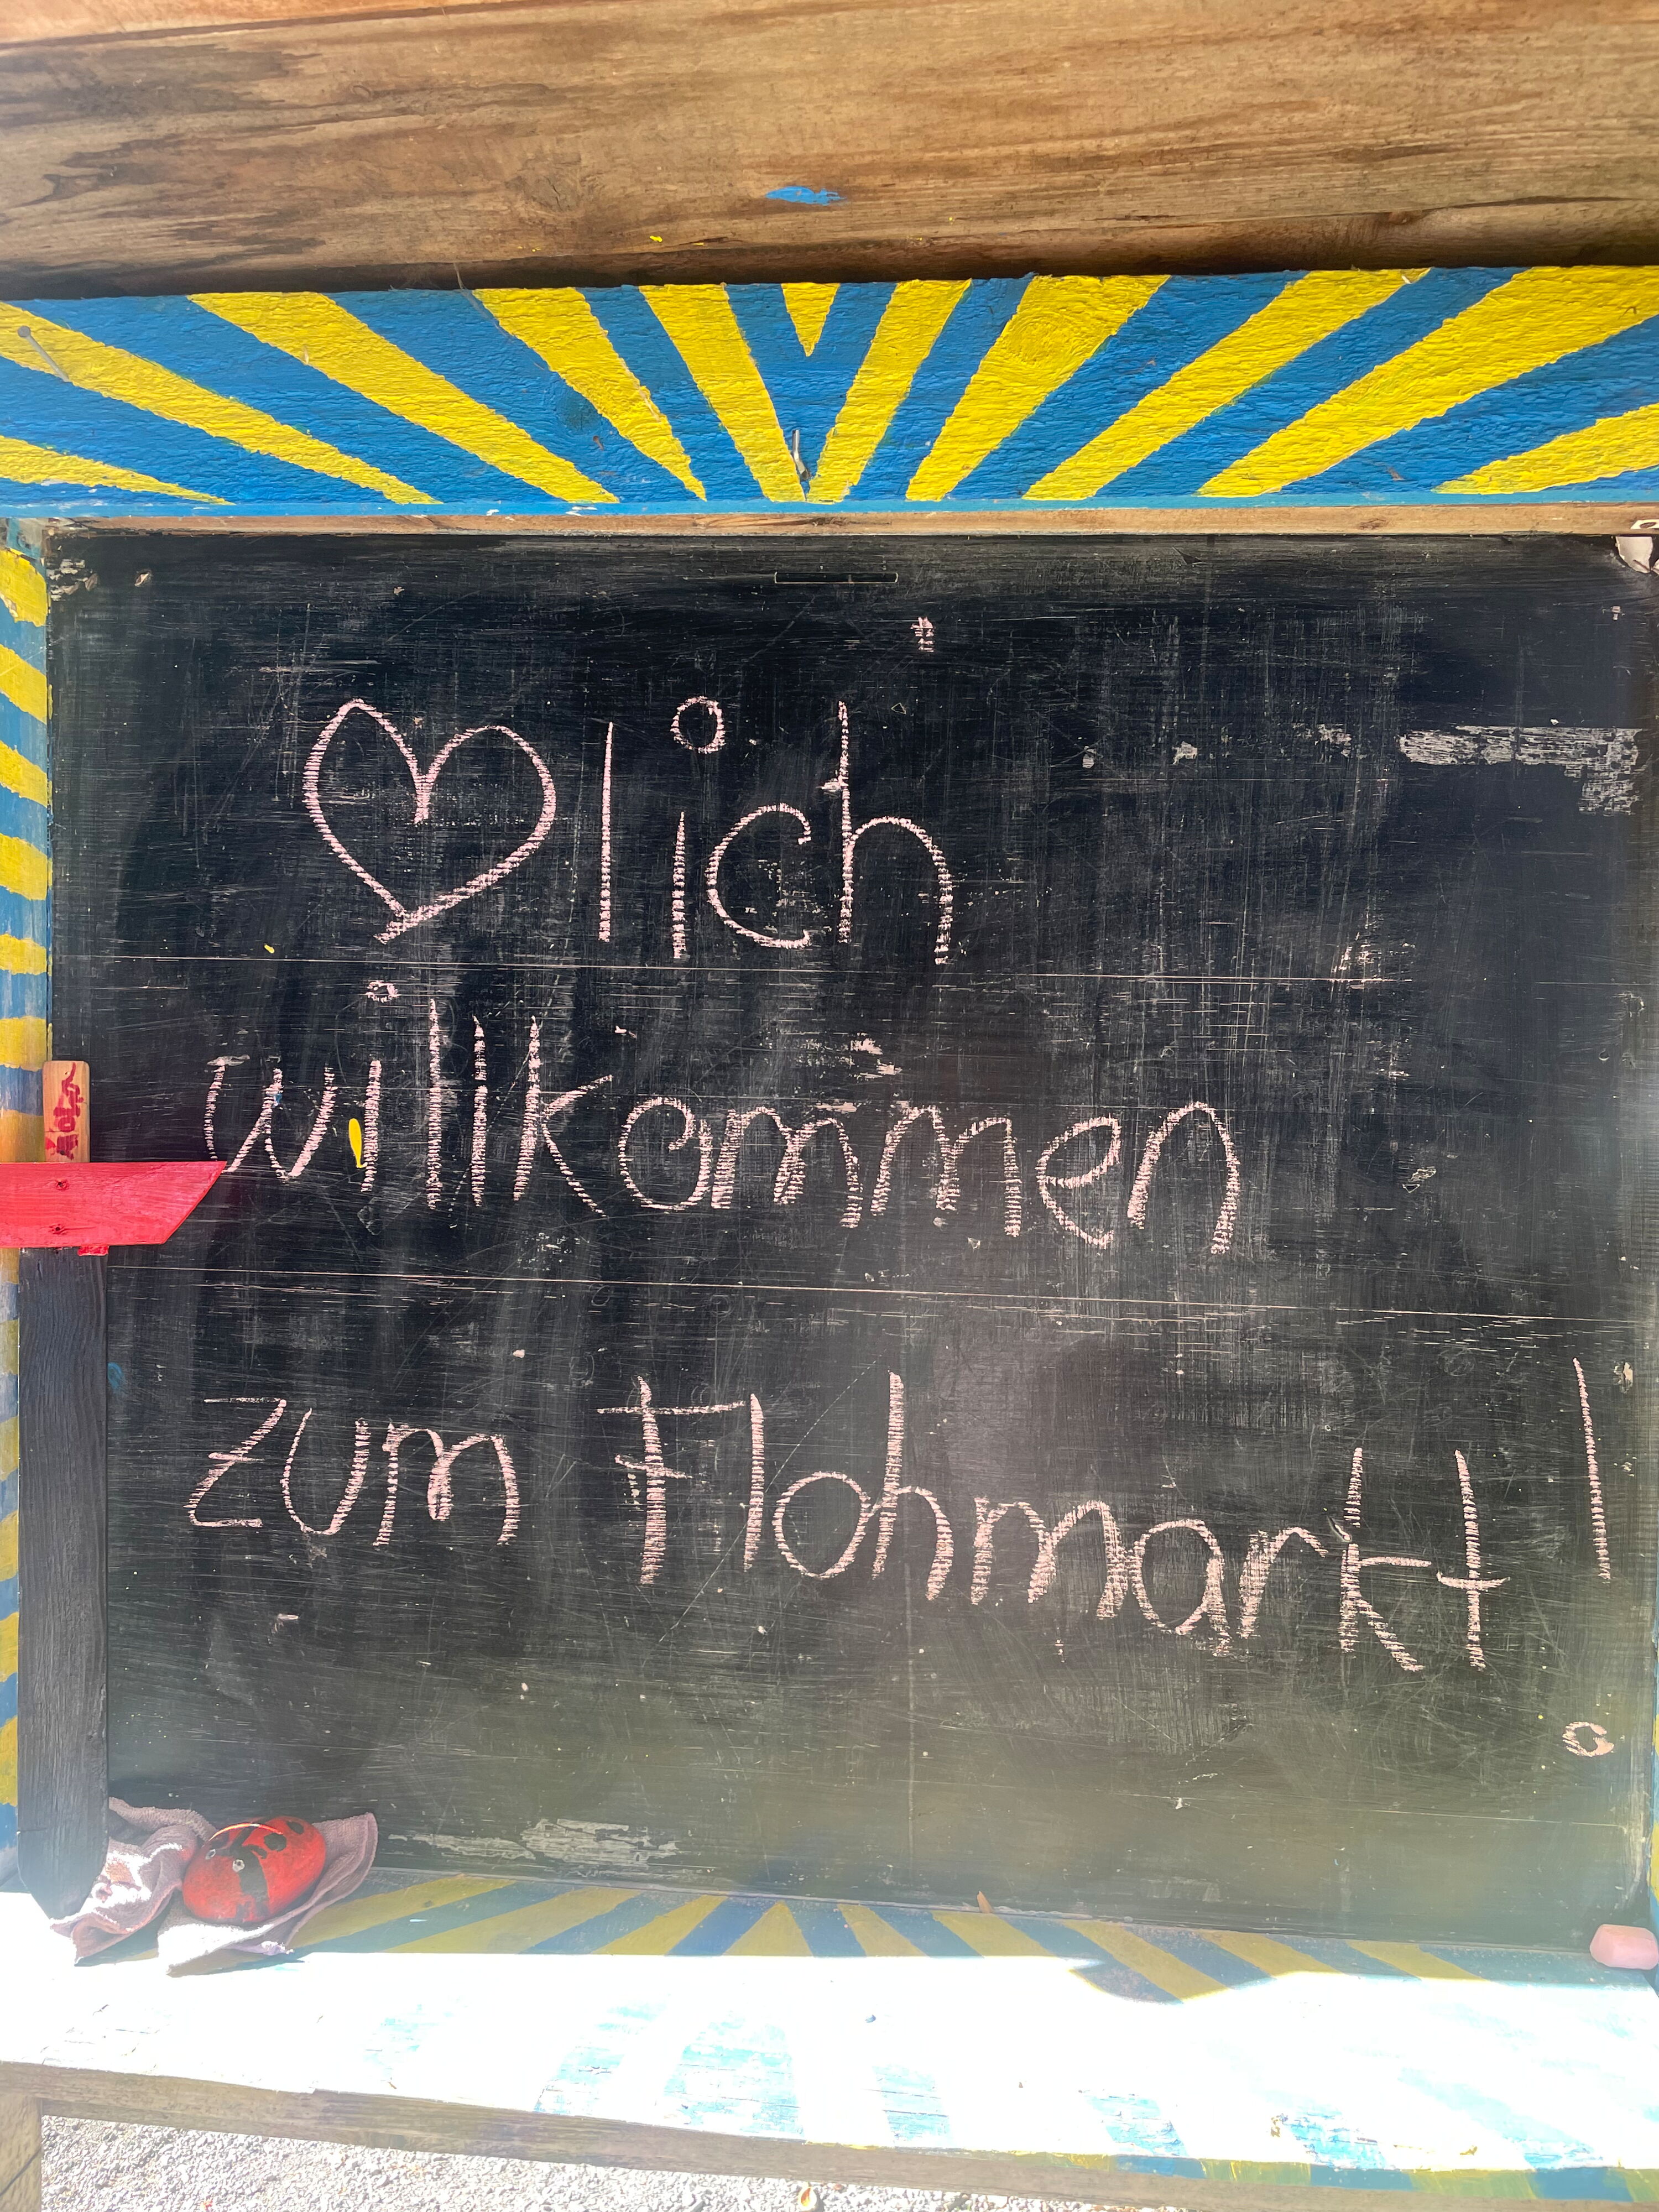 ♡lich
willkommen
zum Flohmarkt!